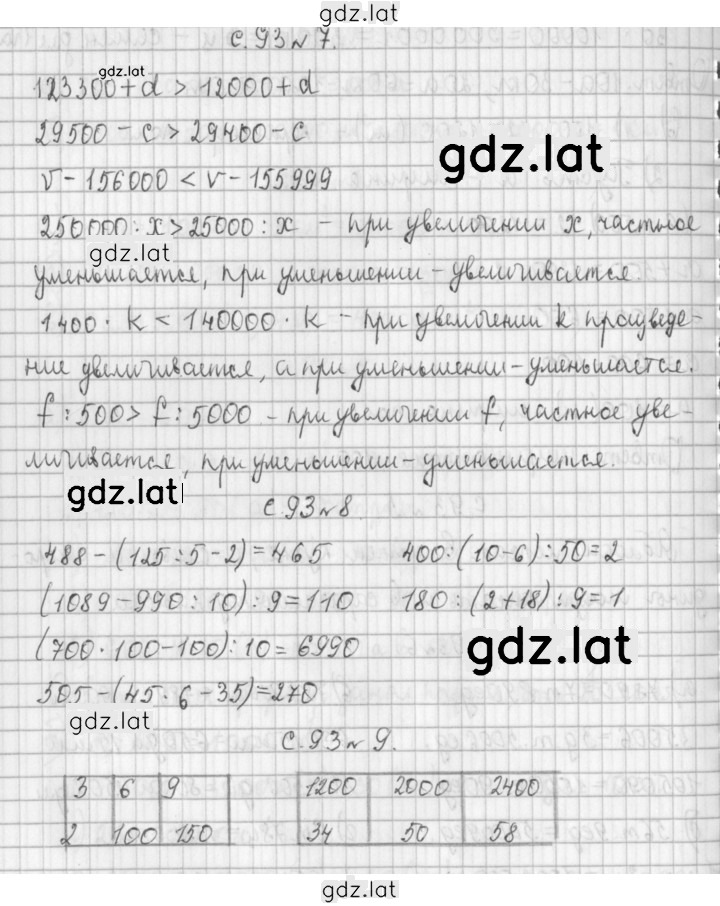 gdz.lat
с.93 №7.
gdz.lat
123300+d > 12000+d
29500 - c > 29400 - c
gdz.lat
v - 156000 < v - 155999
250000 : x > 25000 : x - при увеличении x, частное
gdz.lat
уменьшается, при уменьшении - увеличивается.
1400 · k < 140000 · k - при увеличении k произведе-
ние увеличивается, а при уменьшении - уменьшается.
f : 500 > f : 5000 - при увеличении f, частное уве-
личивается, при уменьшении - уменьшается.
gdz.lat
с.93 №8.
488 - (125 : 5 - 2) = 465 400 : (10 - 6) : 50 = 2
(1089 - 990 : 10) : 9 = 110 180 : (2 + 18) : 9 = 1
(700 · 100 - 100) : 10 = 6990
gdz.lat
505 - (45 · 6 - 35) = 270
gdz.lat
с.93 №9.
3 6 9 1200 2000 2400
2 100 150 34 50 58
gdz.lat